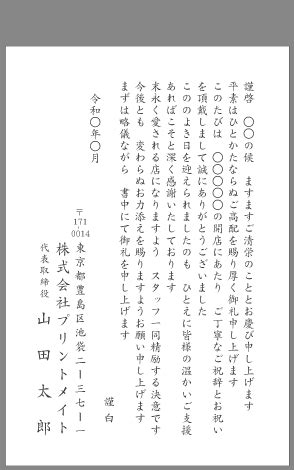 謹啓　〇〇の候　ますますご清栄のこととお慶び申し上げます
平素はひとかたならぬご高配を賜り厚く御礼申し上げます
このたびは　〇〇〇〇の開店にあたり　ご丁寧なご祝辞とお祝い
を頂戴しまして誠にありがとうございました
こののよき日を迎えられましたのも　ひとえに皆様の温かいご支援
あればこそと深く感謝いたしております
末永く愛される店になりますよう　スタッフ一同精励する決意です
今後とも　変わらぬお力添えを賜りますようお願い申し上げます
まずは略儀ながら　書中にて御礼を申し上げます
謹白
令和〇年〇月
〒171 0014
東京都豊島区池袋二ー三七ー一
株式会社プリントメイト
代表取締役　山田太郎